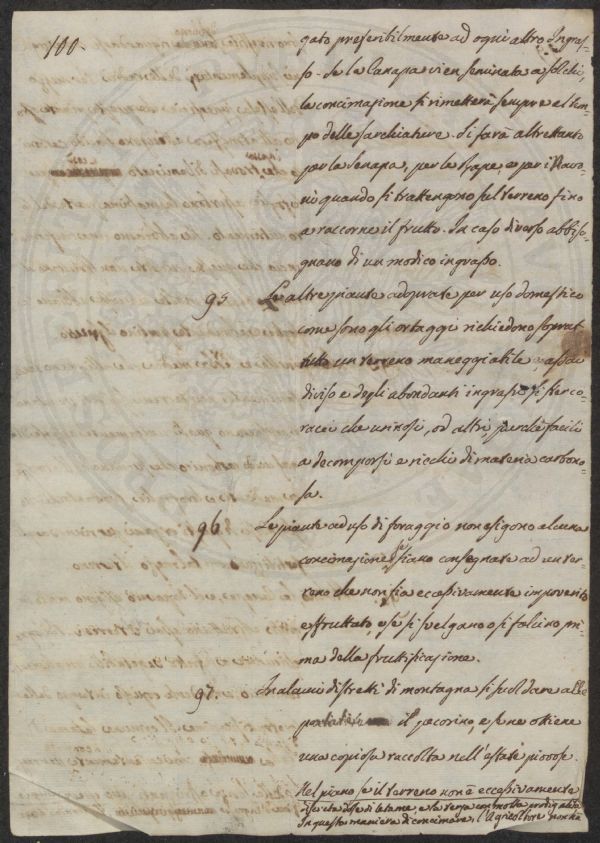 100.
gato preferibilmente ad ogni altro Ingras-
so. Se la Canapa vien seminata a solchi,
la concimazione si rimetterà sempre al tem-
po delle sarchiature. Si farà altrettanto
per la Senapa, per le Rape, e per i Navo-
ni quando si trattengono sul terreno fino
a raccorne il frutto. In caso diverso abbiso-
gnano di un modico ingrasso.
95. Le altre piante adoprate per uso domestico
come sono gli ortaggi richiedono soprat-
tutto un terreno maneggiabile assai
diviso e degli abondanti ingrassi sì sterco-
racei che urinosi, od altri, perchè facili
a decomporsi e ricchi di materia carbono-
sa.
96. Le piante ad uso di foraggio non esigono alcuna
concimazione se siano consegnate ad un ter-
reno che non sia eccessivamente impoverito
e sfruttato, e se si svelgano o si falcino pri-
ma della fruttificazione.
97. In alcuni distretti di montagna si suol dare alle
il pecorino, e se ne ottiene
una copiosa raccolta nell'estate piovose.
Nel piano se il terreno non è eccessivamente
si letame, e la rena con molta prodigalità
In questa maniera di concimare, l'Agricoltore non ha